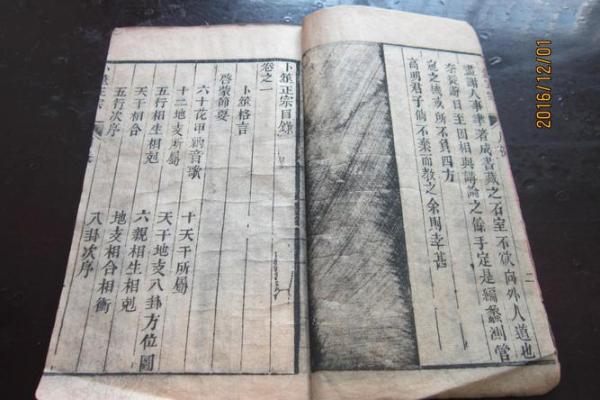 謝人事筆著成書藏之石室不欲向外人道也
日主因相與講論之餘手定是編蠡測管
窺之機或所不負四方
高明君子倘不棄而教之余幸甚
二
卜筮正宗目錄
卷之一
啓蒙節要
卜筮格言
六十花甲納音歌
十二地支所屬 十天干所屬
五行相生相剋 天干地支八卦方位圖
天干相合 六親相生相剋
五行次序 地支相合相衝
八卦次序
2016/12/01